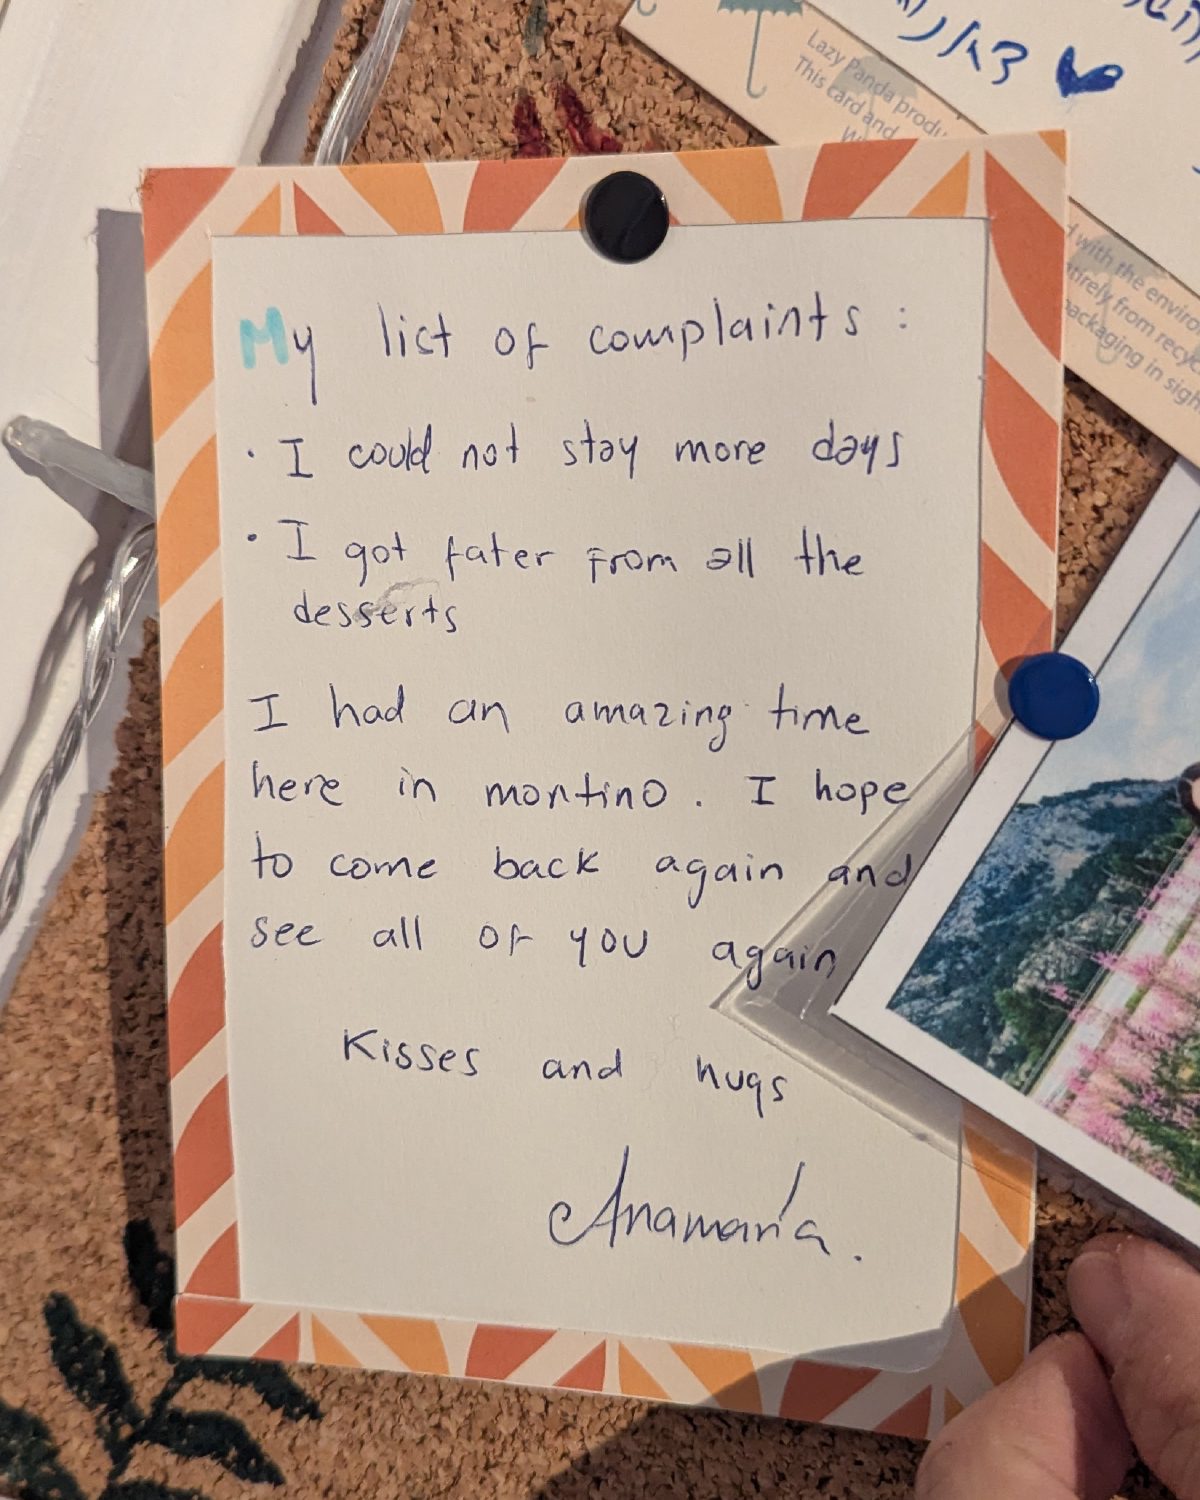 Lazy Panda
This card and
with the enviro
entirely from recyc
packaging in sigh
My list of complaints :
· I could not stay more days
· I got fater from all the
desserts
I had an amazing time
here in montino. I hope
to come back again and
see all of you again
Kisses and hugs
Anamaría.